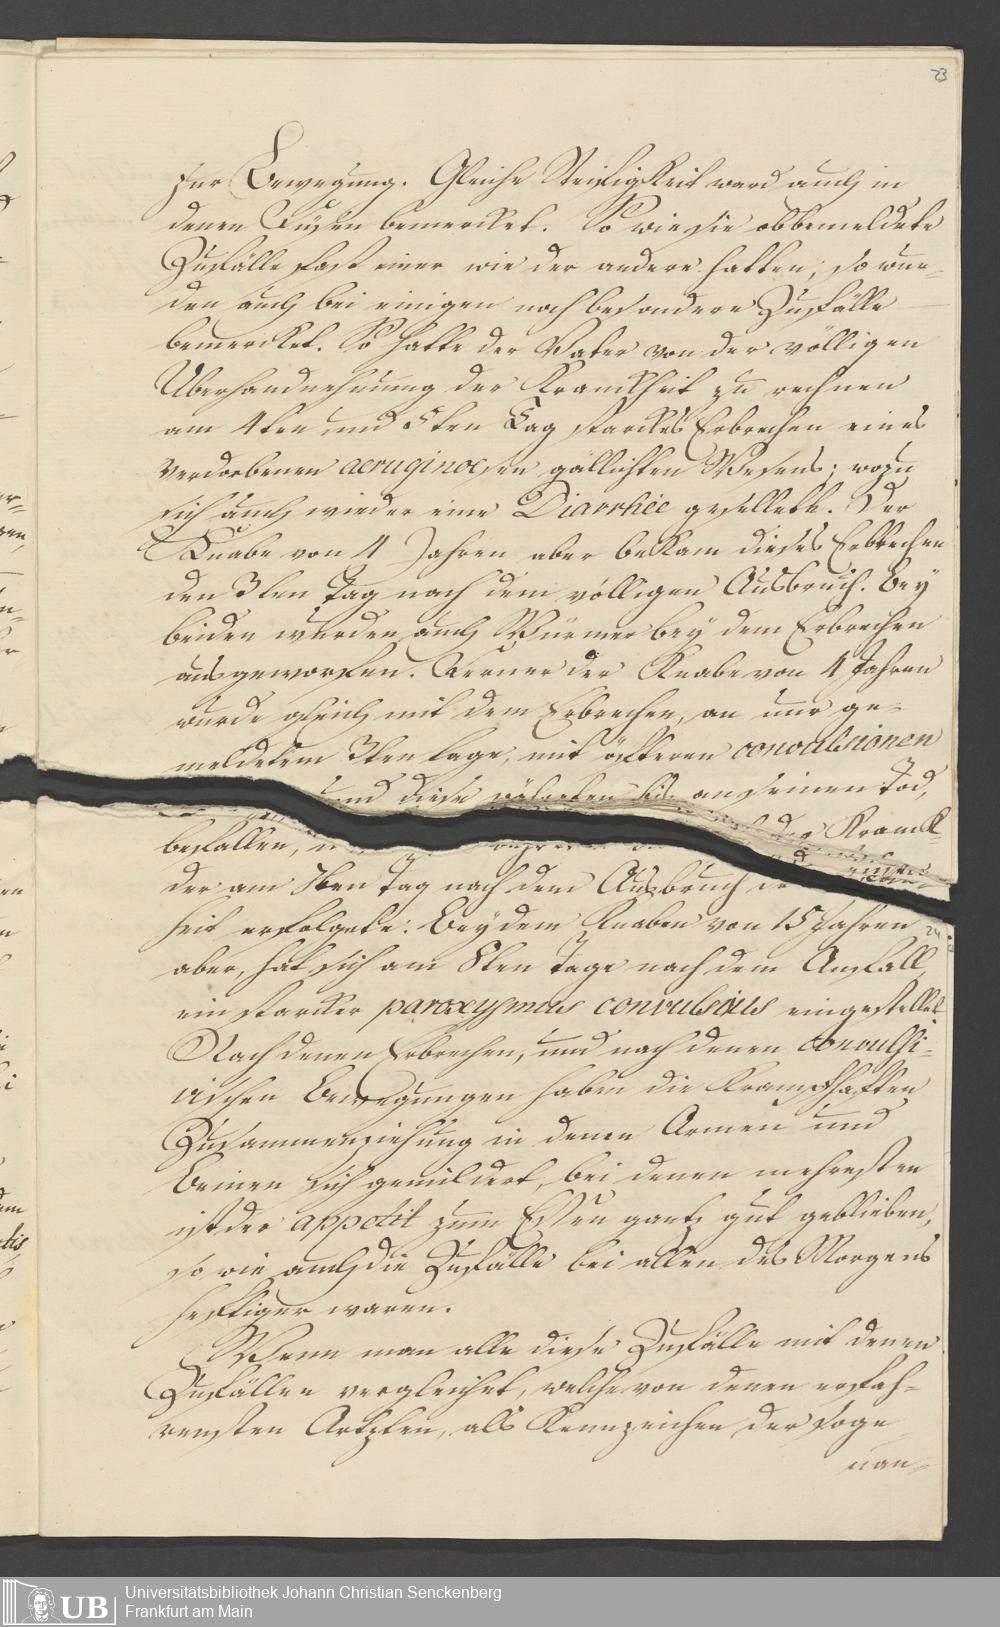 23
zur Bewegung. Gleiche Steifigkeit ward auch in
denen Füßen bemercket. So wie sie obbemeldete
Zufälle fast einer wie der andere hatten, so wur-
den auch bei einigen noch besondere Zufälle
bemercket. So hatte der Vater von der völligen
Überhandnehmung der Kranckheit zu rechnen
am 4ten und 5ten Tag starckes Erbrechen eines
verdorbenen aeruginoesen gallichten Wesens; wozu
sich auch wieder eine Diarrhée gesellete. Der
Knabe von 4 Jahren aber bekam dieses Erbrechen
den 3ten Tag nach dem völligen Ausbruch. Bey
beiden wurden auch Würmer bey dem Erbrechen
ausgeworfen. Ferner der Knabe von 4 Jahren
wurde gleich mit dem Erbrechen, an nur ge-
meldetem 3ten tage, mit öfteren convulsionen
und diese an seinen Tod,
befallen, der Kranck-
der am Tag nach dem Ausbruch
heit erfolgete: Bey dem Knaben von 15 Jahren
24
aber, hat sich am 8ten Tage nach dem Anfall,
ein starcker paroxysmus convulsivus eingestellet
Nach denen Erbrechen, und nach denen convulsi-
vischen Bewegungen haben die krampfhaften
Zusammenziehung in denen Armen und
Beinen sich gemildert, bei denen mehresten
ist der appetit zum Essen gantz gut geblieben,
so wie auch die Zufälle bei allen des Morgens
heftiger waren.
Wenn man alle diese Zufälle mit denen
Zufällen vergleichet, welche von denen erfah-
rensten Artzten, als Kennzeichen der soge
nan-
UB
Universitätsbibliothek Johann Christian Senckenberg
Frankfurt am Main